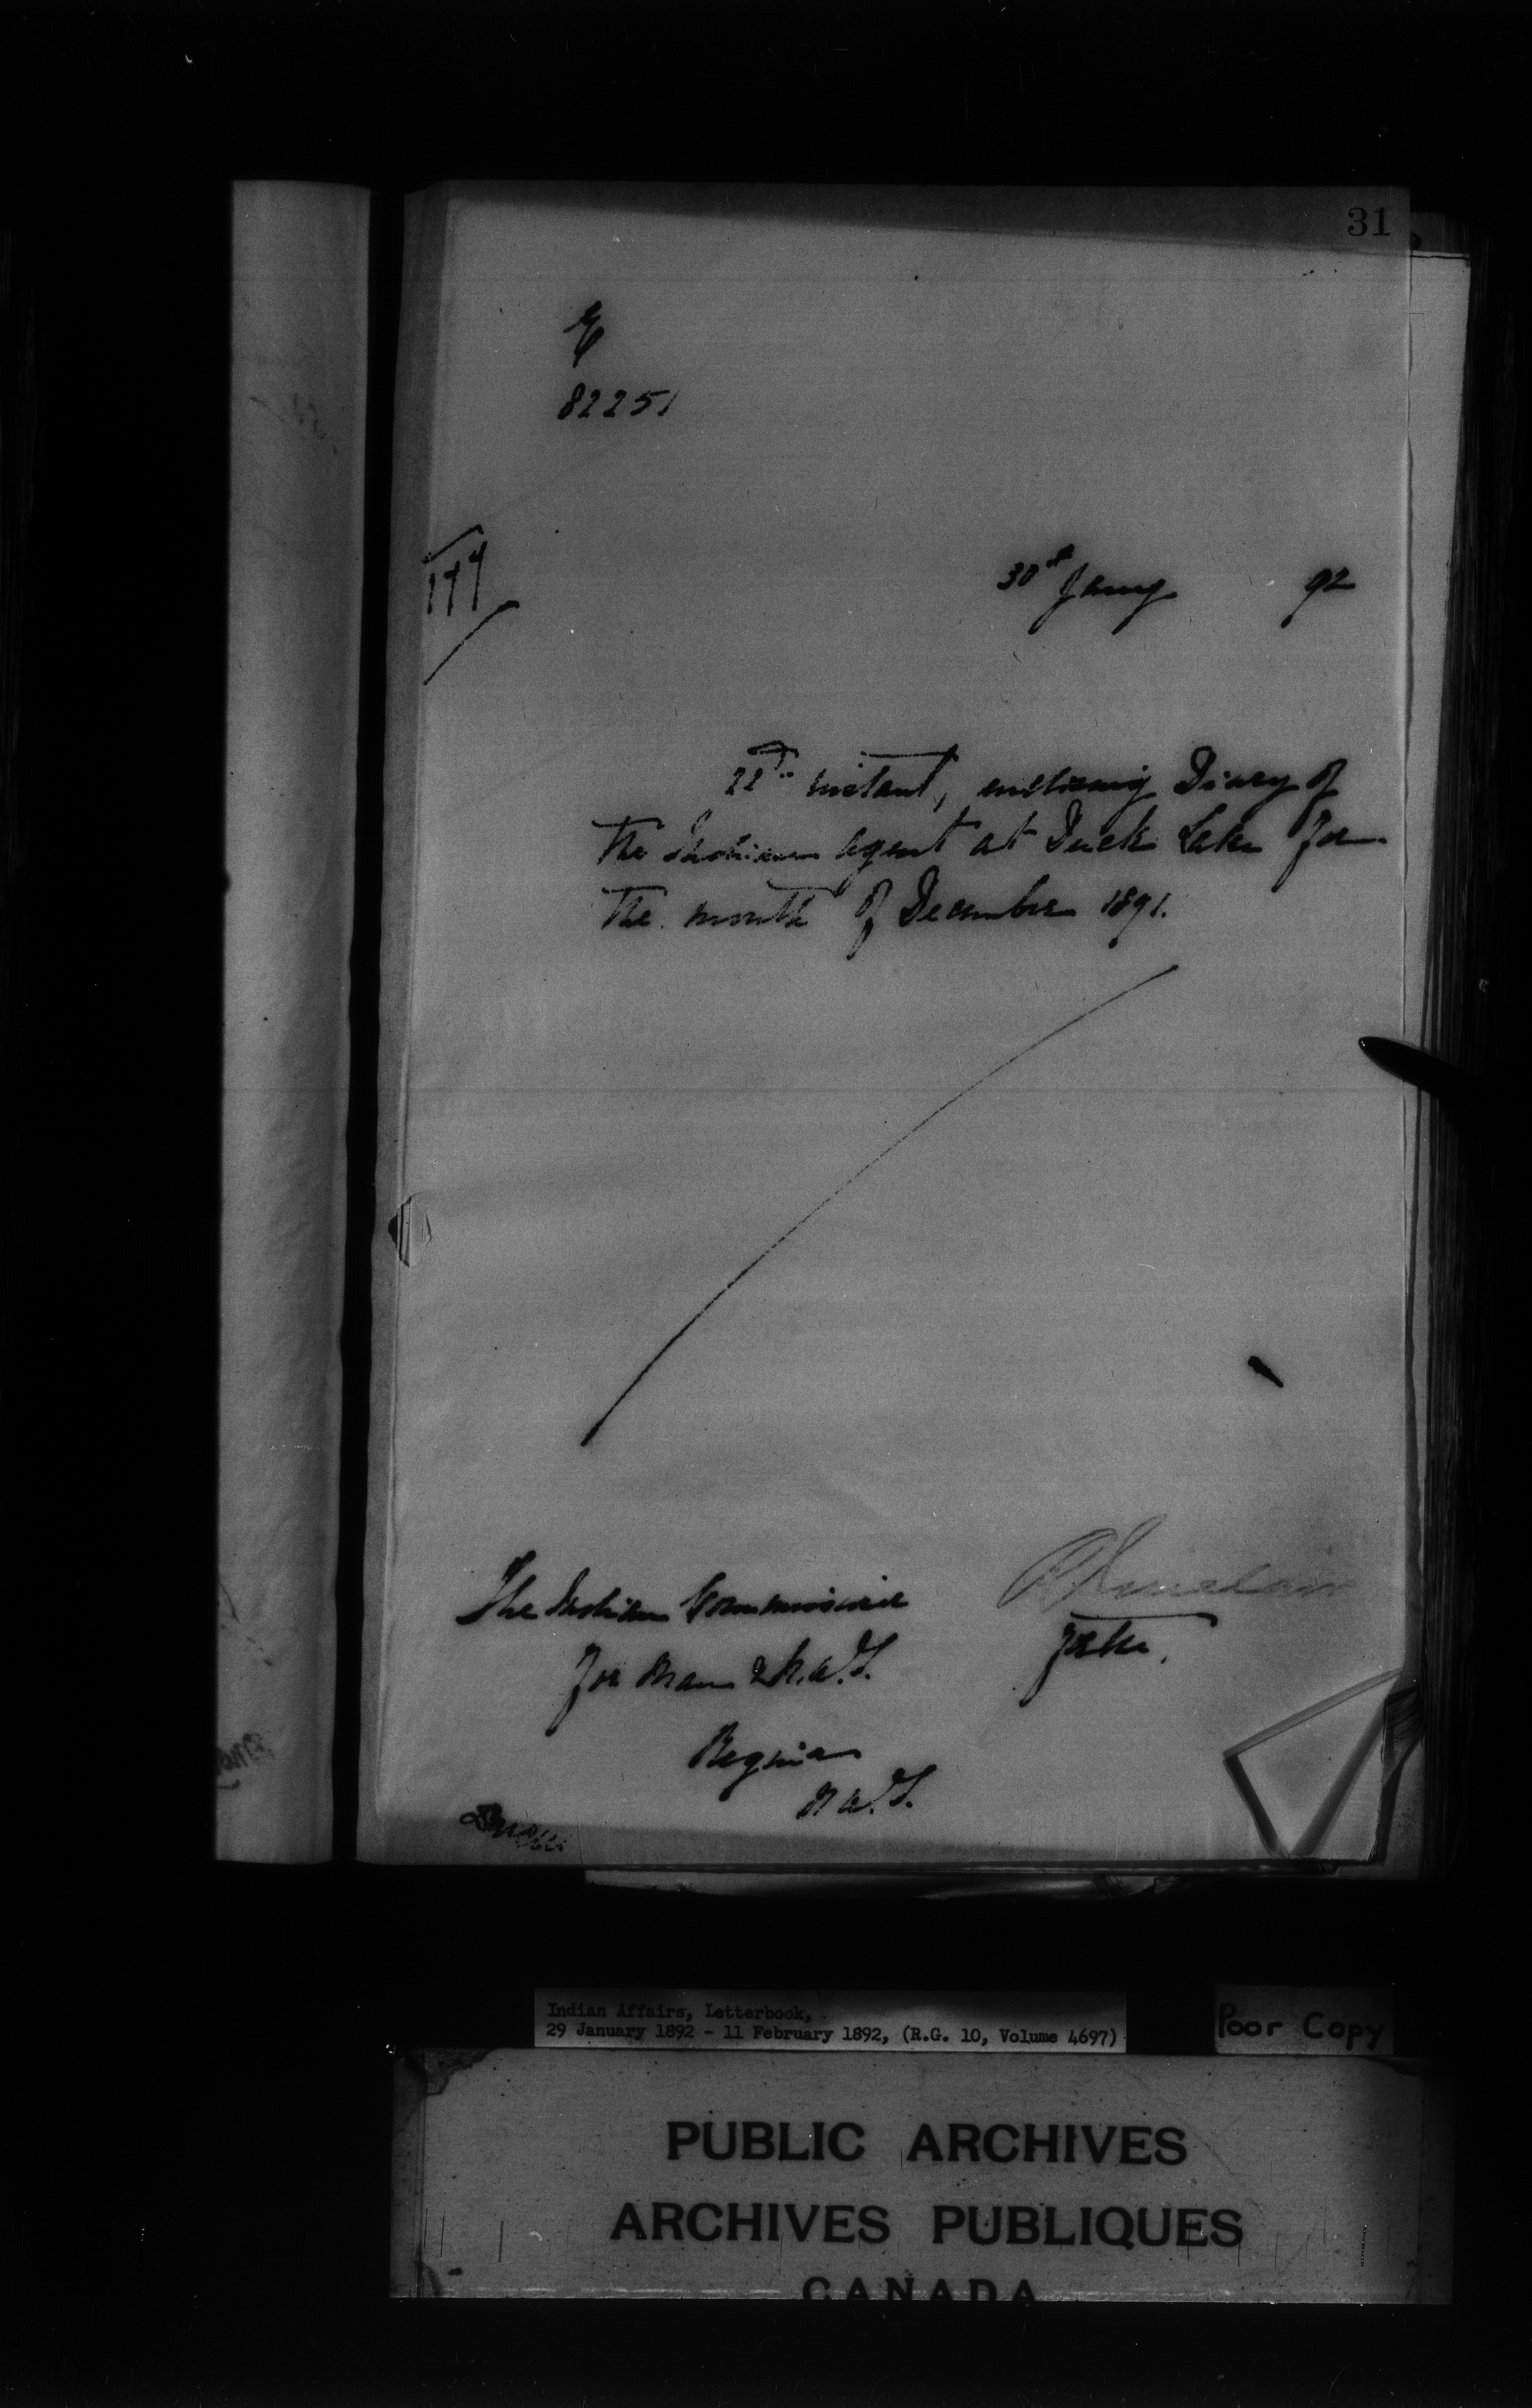 31
82251
30th Jany 92
22nd instant, enclosing Diary of
the Indian Agent at Duck Lake for
the month of December 1891.
The Indian Commissioner
for Man & N.W.T.
Regina
N.W.T.
R Sinclair
for
Indian Affairs, Letterbook,
29 January 1892 - 11 February 1892, (R.G. 10, Volume 4697)
Poor Copy
PUBLIC ARCHIVES
ARCHIVES PUBLIQUES
CANADA